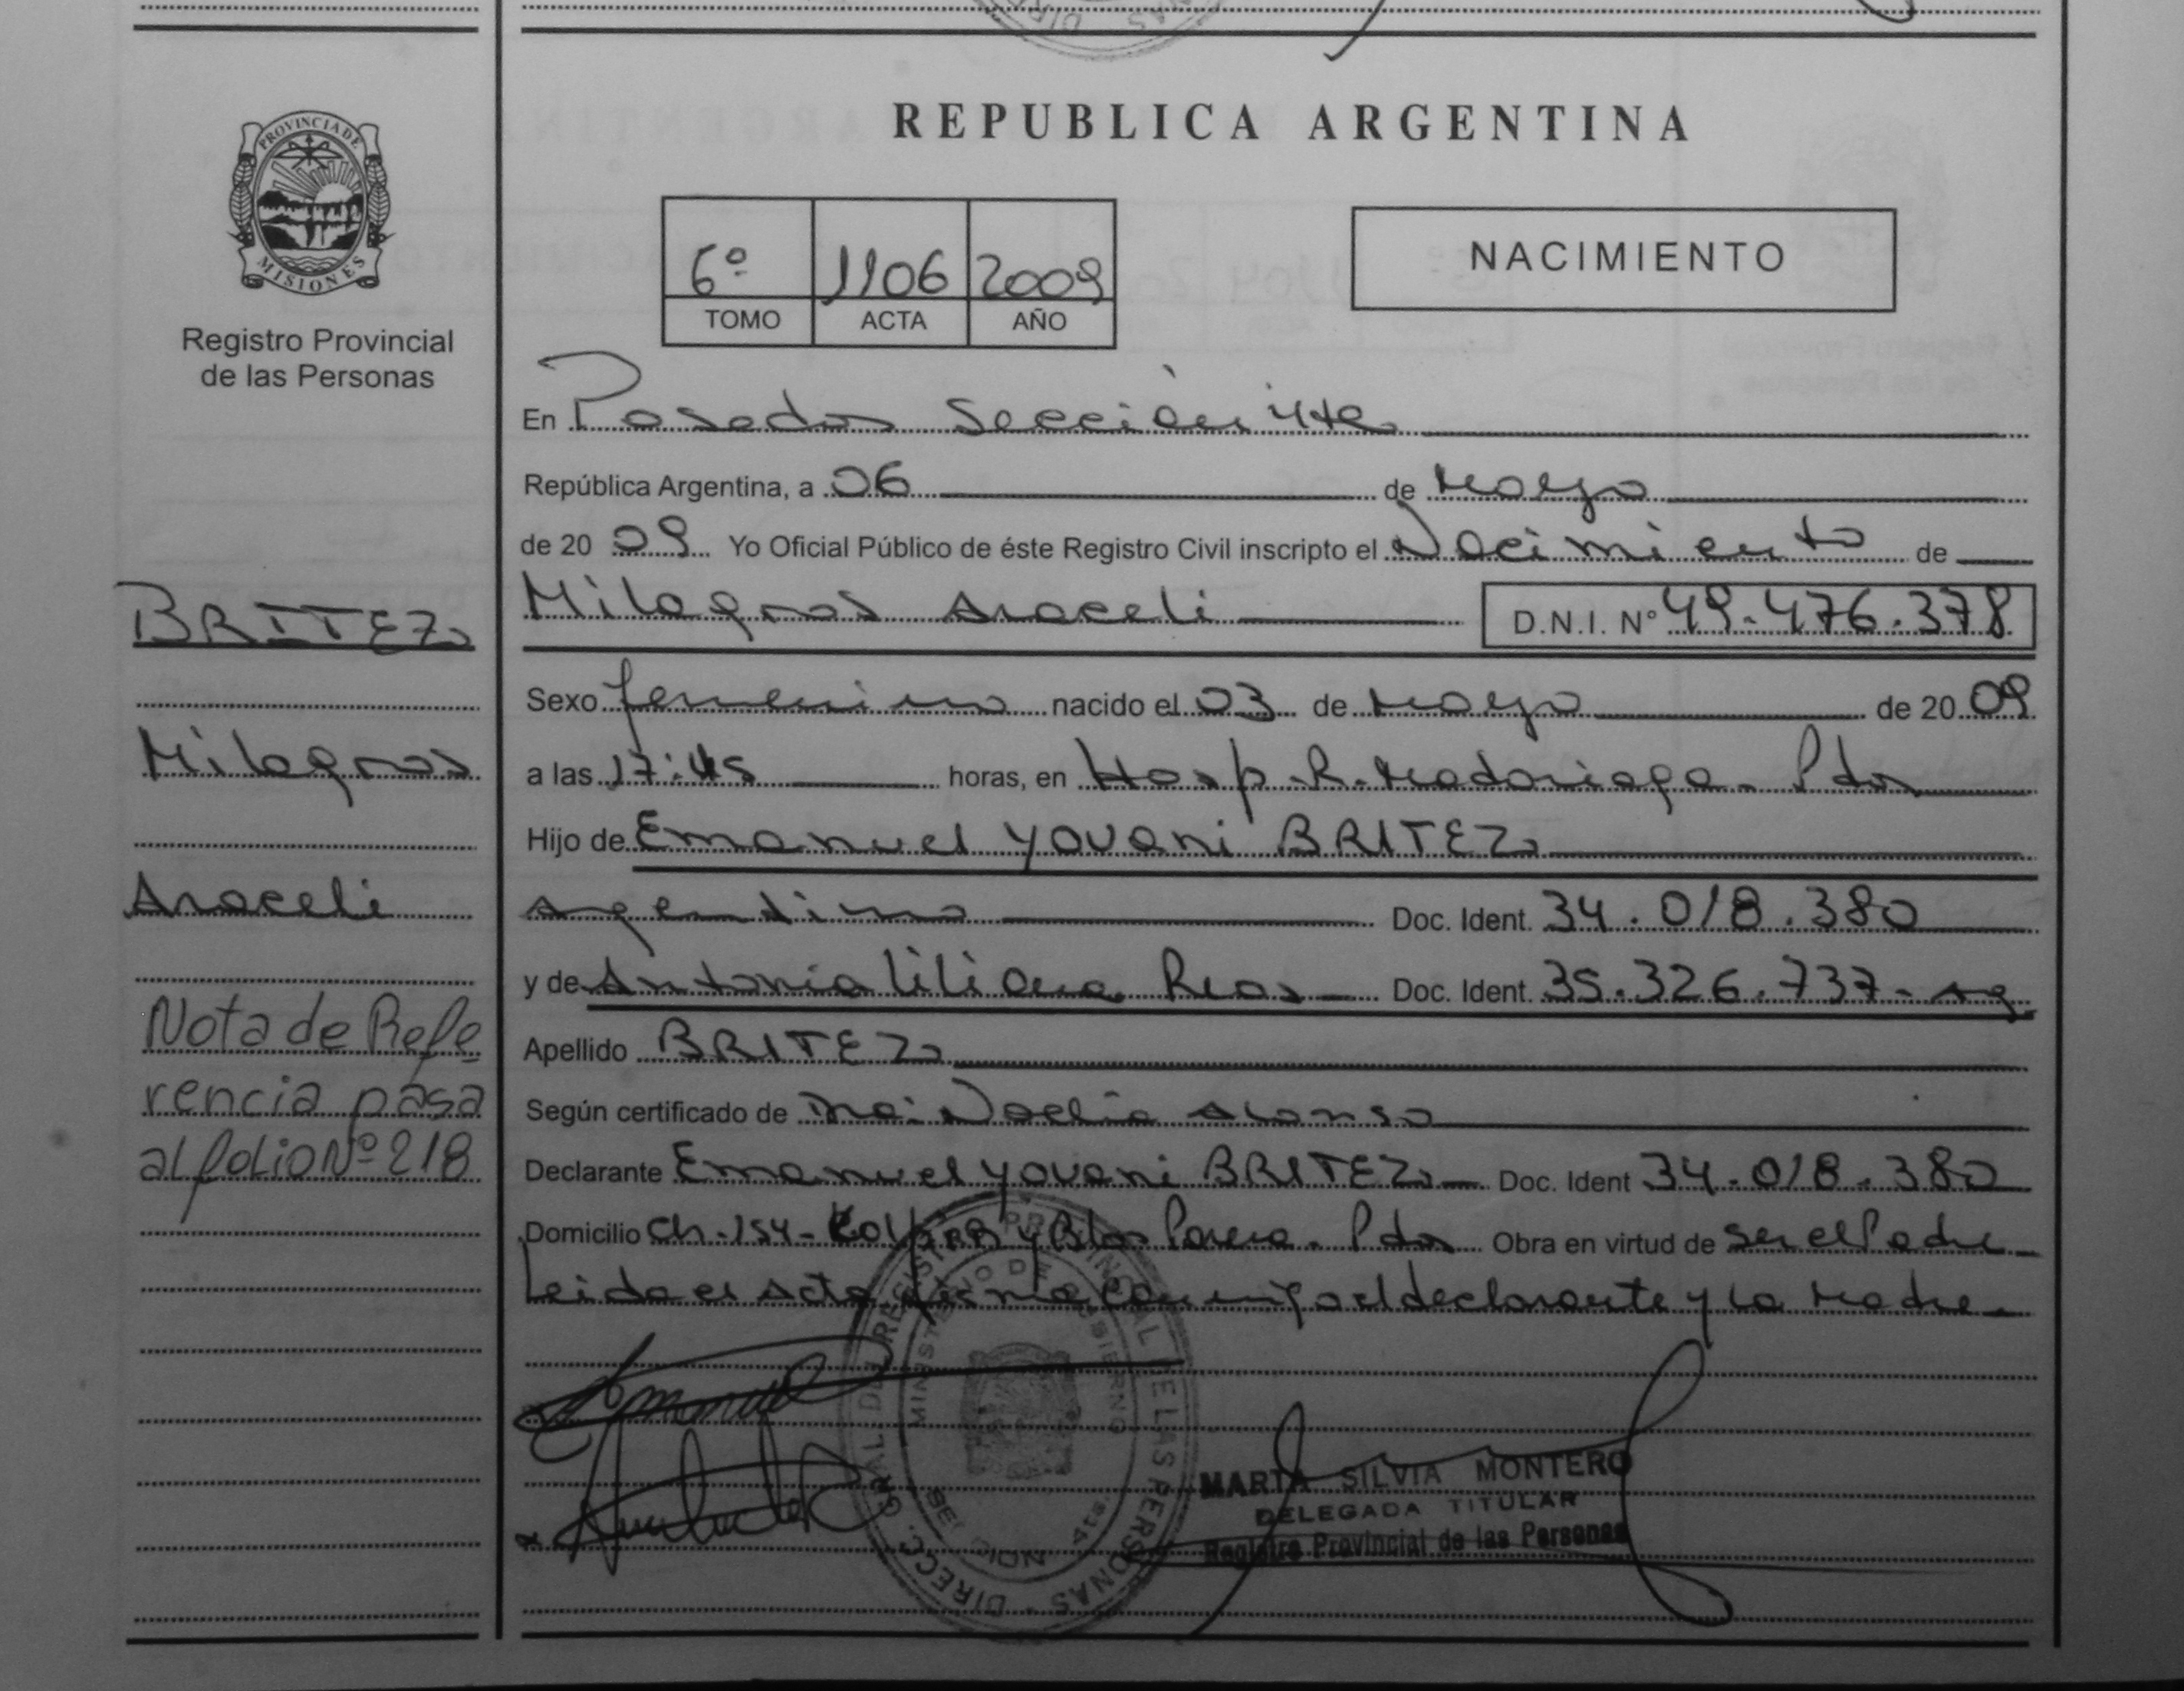 PROVINCIA DE
MISIONES
Registro Provincial
de las Personas
BRITEZ
Milagros
Araceli
Nota de Refe
rencia pasa
al folio Nº 218
REPUBLICA ARGENTINA
6º 1106 2009
TOMO ACTA AÑO
NACIMIENTO
En Posadas Sección 4ta
República Argentina, a 06 de Mayo
de 20 09 Yo Oficial Público de éste Registro Civil inscripto el Nacimiento de
Milagros Araceli D.N.I. Nº 49.476.378
Sexo femenino nacido el 03 de Mayo de 20 09
a las 17:45 horas, en Hosp. R. Madariaga - Pdas
Hijo de Emanuel Yovani BRITEZ
Argentino Doc. Ident. 34.018.380
y de Antonia Liliana Doc. Ident. 35.326.737 - Arg.
Apellido BRITEZ
Según certificado de Noelia Alonso
Declarante Emanuel Yovani BRITEZ Doc. Ident 34.018.380
Domicilio Ch. 154 - y Blas Parera - Pdas Obra en virtud de ser el Padre
Leida el Acta firma conmigo el declarante y la Madre
DIRECC. GRAL DEL REGISTRO PROVINCIAL DE LAS PERSONAS
MINISTERIO DE GOBIERNO
SECCION 4ta.
MARTA SILVIA MONTERO
DELEGADA TITULAR
Registro Provincial de las Personas